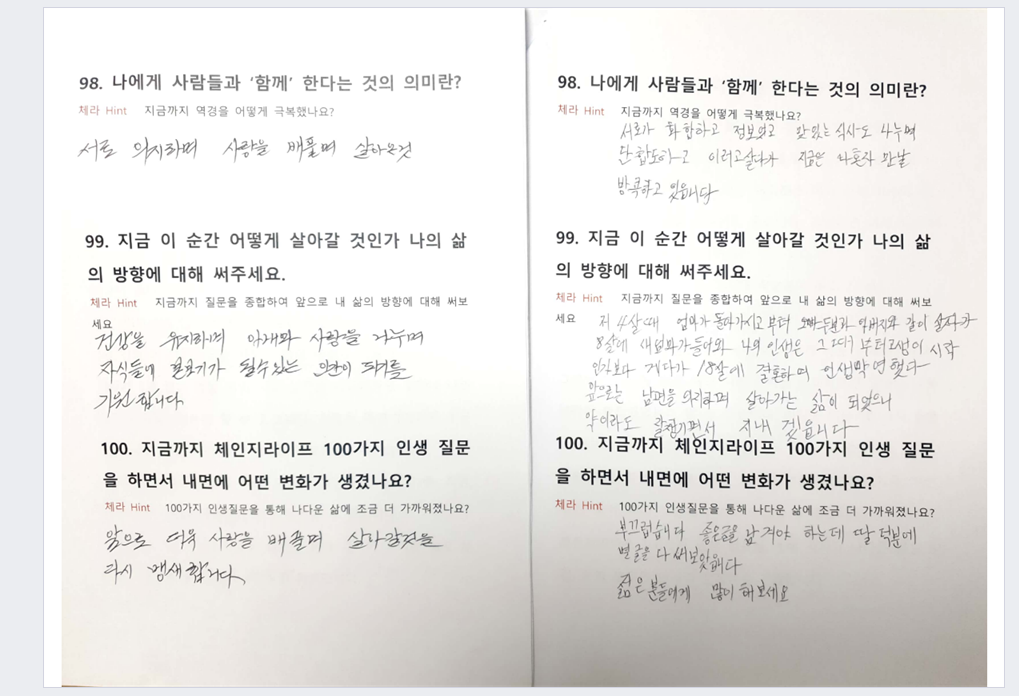 98. 나에게 사람들과 '함께' 한다는 것의 의미란?
체라 Hint 지금까지 역경을 어떻게 극복했나요?
서로 의지하며 사랑을 배풀며 살아온것
99. 지금 이 순간 어떻게 살아갈 것인가 나의 삶
의 방향에 대해 써주세요.
체라 Hint 지금까지 질문을 종합하여 앞으로 내 삶의 방향에 대해 써보
세요
건강을 유지하며 아내와 사랑을 나누며
자식들에 될수있는 되기를
기원합니다
100. 지금까지 체인지라이프 100가지 인생 질문
을 하면서 내면에 어떤 변화가 생겼나요?
체라 Hint 100가지 인생질문을 통해 나다운 삶에 조금 더 가까워졌나요?
앞으로 더욱 사랑을 배풀며 살아갈것을
다시 맹새합니다
98. 나에게 사람들과 '함께' 한다는 것의 의미란?
체라 Hint 지금까지 역경을 어떻게 극복했나요?
서로가 화합하고 맛있는 식사도 나누며
단합도하고 이러고살다가 지금은 나혼자 만날
방콕하고 있읍니다
99. 지금 이 순간 어떻게 살아갈 것인가 나의 삶
의 방향에 대해 써주세요.
체라 Hint 지금까지 질문을 종합하여 앞으로 내 삶의 방향에 대해 써보
세요
제 4살때 엄마가 돌아가시고부터 아버지와 같이 살다가
8살에 새엄마가들어와 나의 인생은 그때부터고생이 시작
게다가 18살에 결혼하며
앞으로는 남편을 의지하며 살아가는 삶이 되었으니
약이라도 잘챙기면서 지내 겠읍니다
100. 지금까지 체인지라이프 100가지 인생 질문
을 하면서 내면에 어떤 변화가 생겼나요?
체라 Hint 100가지 인생질문을 통해 나다운 삶에 조금 더 가까워졌나요?
부끄럽습니다 좋은글을 남겨야 하는데 딸 덕분에
별글을 다 써보앗읍니다
젊은 분들에게 많이 해보세요